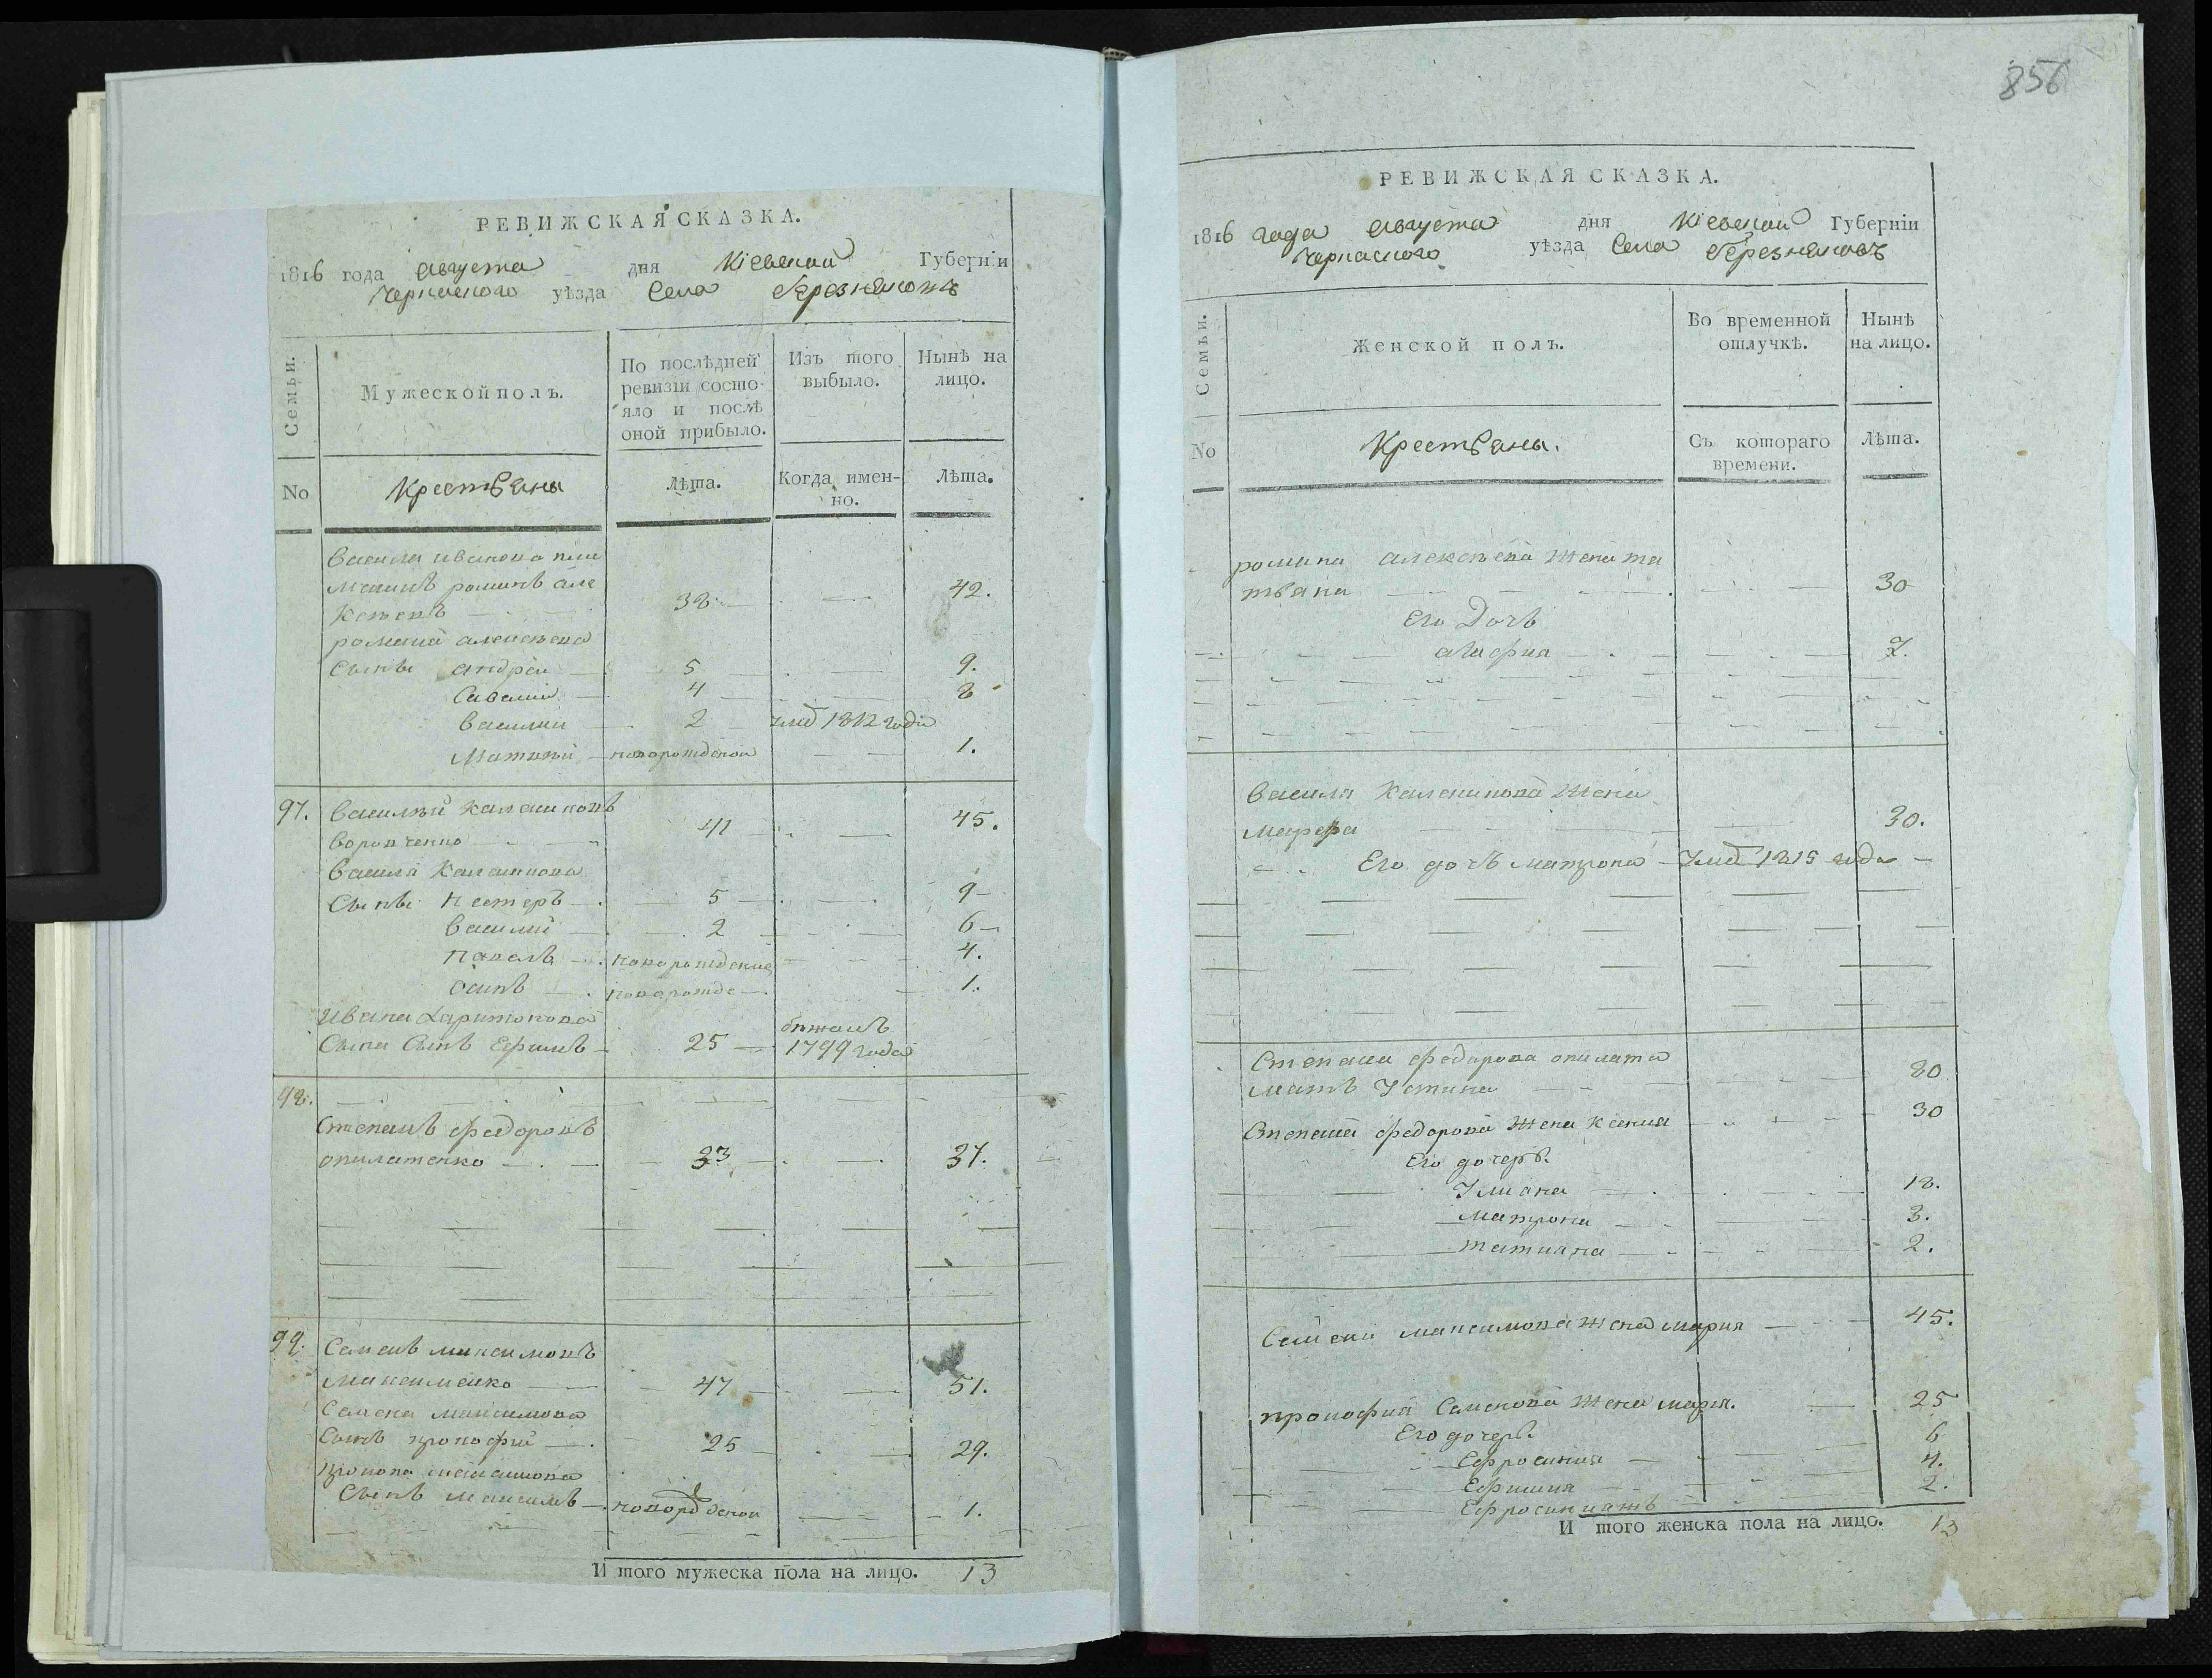 856
РЕВИЖСКАЯ СКАЗКА.
1816 года августа дня Кіевской Губерніи
Черкаского уѣзда Села Березняковъ
Семьи.
Мужеской полъ.
По послѣдней ревизіи состо-
яло и послѣ
оной прибыло.
Изъ того
выбыло.
Нынѣ на
лицо.
No
Крестьяны
Лѣта.
Когда имен-
но.
Лѣта.
Василя Иванова пле
мянникъ романъ але
ксѣевъ 38 42.
романа алексѣева
Сынъ андрей 5 9.
Савелий 4 8
Василий 2 умер 1812 года
Матвей новорожденой 1.
97. Василий Калениковъ
Воронченко 41 45.
Василя Каленикова
Сынъ Нестеръ 5 9
Василий 2 6
Павелъ новорожденые 4.
Осипъ новорожде 1.
Ивана Харитонова бежалъ
Сына Сынъ Ефимъ 25 1799 года
98.
Степанъ федоровъ
опилатенко 33 37.
99. Семенъ максимовъ
Максименко 47 51.
Семена максимова
Сынъ прокофий 25 29.
прокопа максимова
Сынъ максимъ новорожденой 1.
И того мужеска пола на лицо. 13
РЕВИЖСКАЯ СКАЗКА.
1816 года августа дня Кіевской Губерніи
Черкаского уѣзда Села Березняковъ
Семьи.
Женской полъ.
Во временной
отлучкѣ.
Нынѣ
на лицо.
No
Крестьяны.
Съ котораго
времени.
Лѣта.
романа алексѣева жена та
тьяна 30
Его Дочь
агафия 7.
Василя Каленикова жена
марфа 30.
Его дочь матрона умер 1815 года
Степана федорова опилата
мать Устина 80
Степана федорова жена Ксения 30
Его дочерь.
Улиана 18.
матрона 3.
татиана 2.
Семена максимова жена мария 45.
прокофия Семенова жена мария. 25
Его дочерь. 6
Ефросиния 4.
Ефимия 2.
И того женска пола на лицо. 13